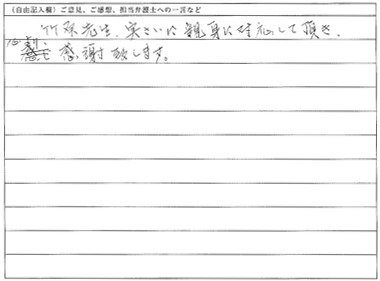 （自由記入欄）ご意見、ご感想、担当弁護士への一言など
竹原先生、実さいに親身に対応して頂き、
感謝致します。